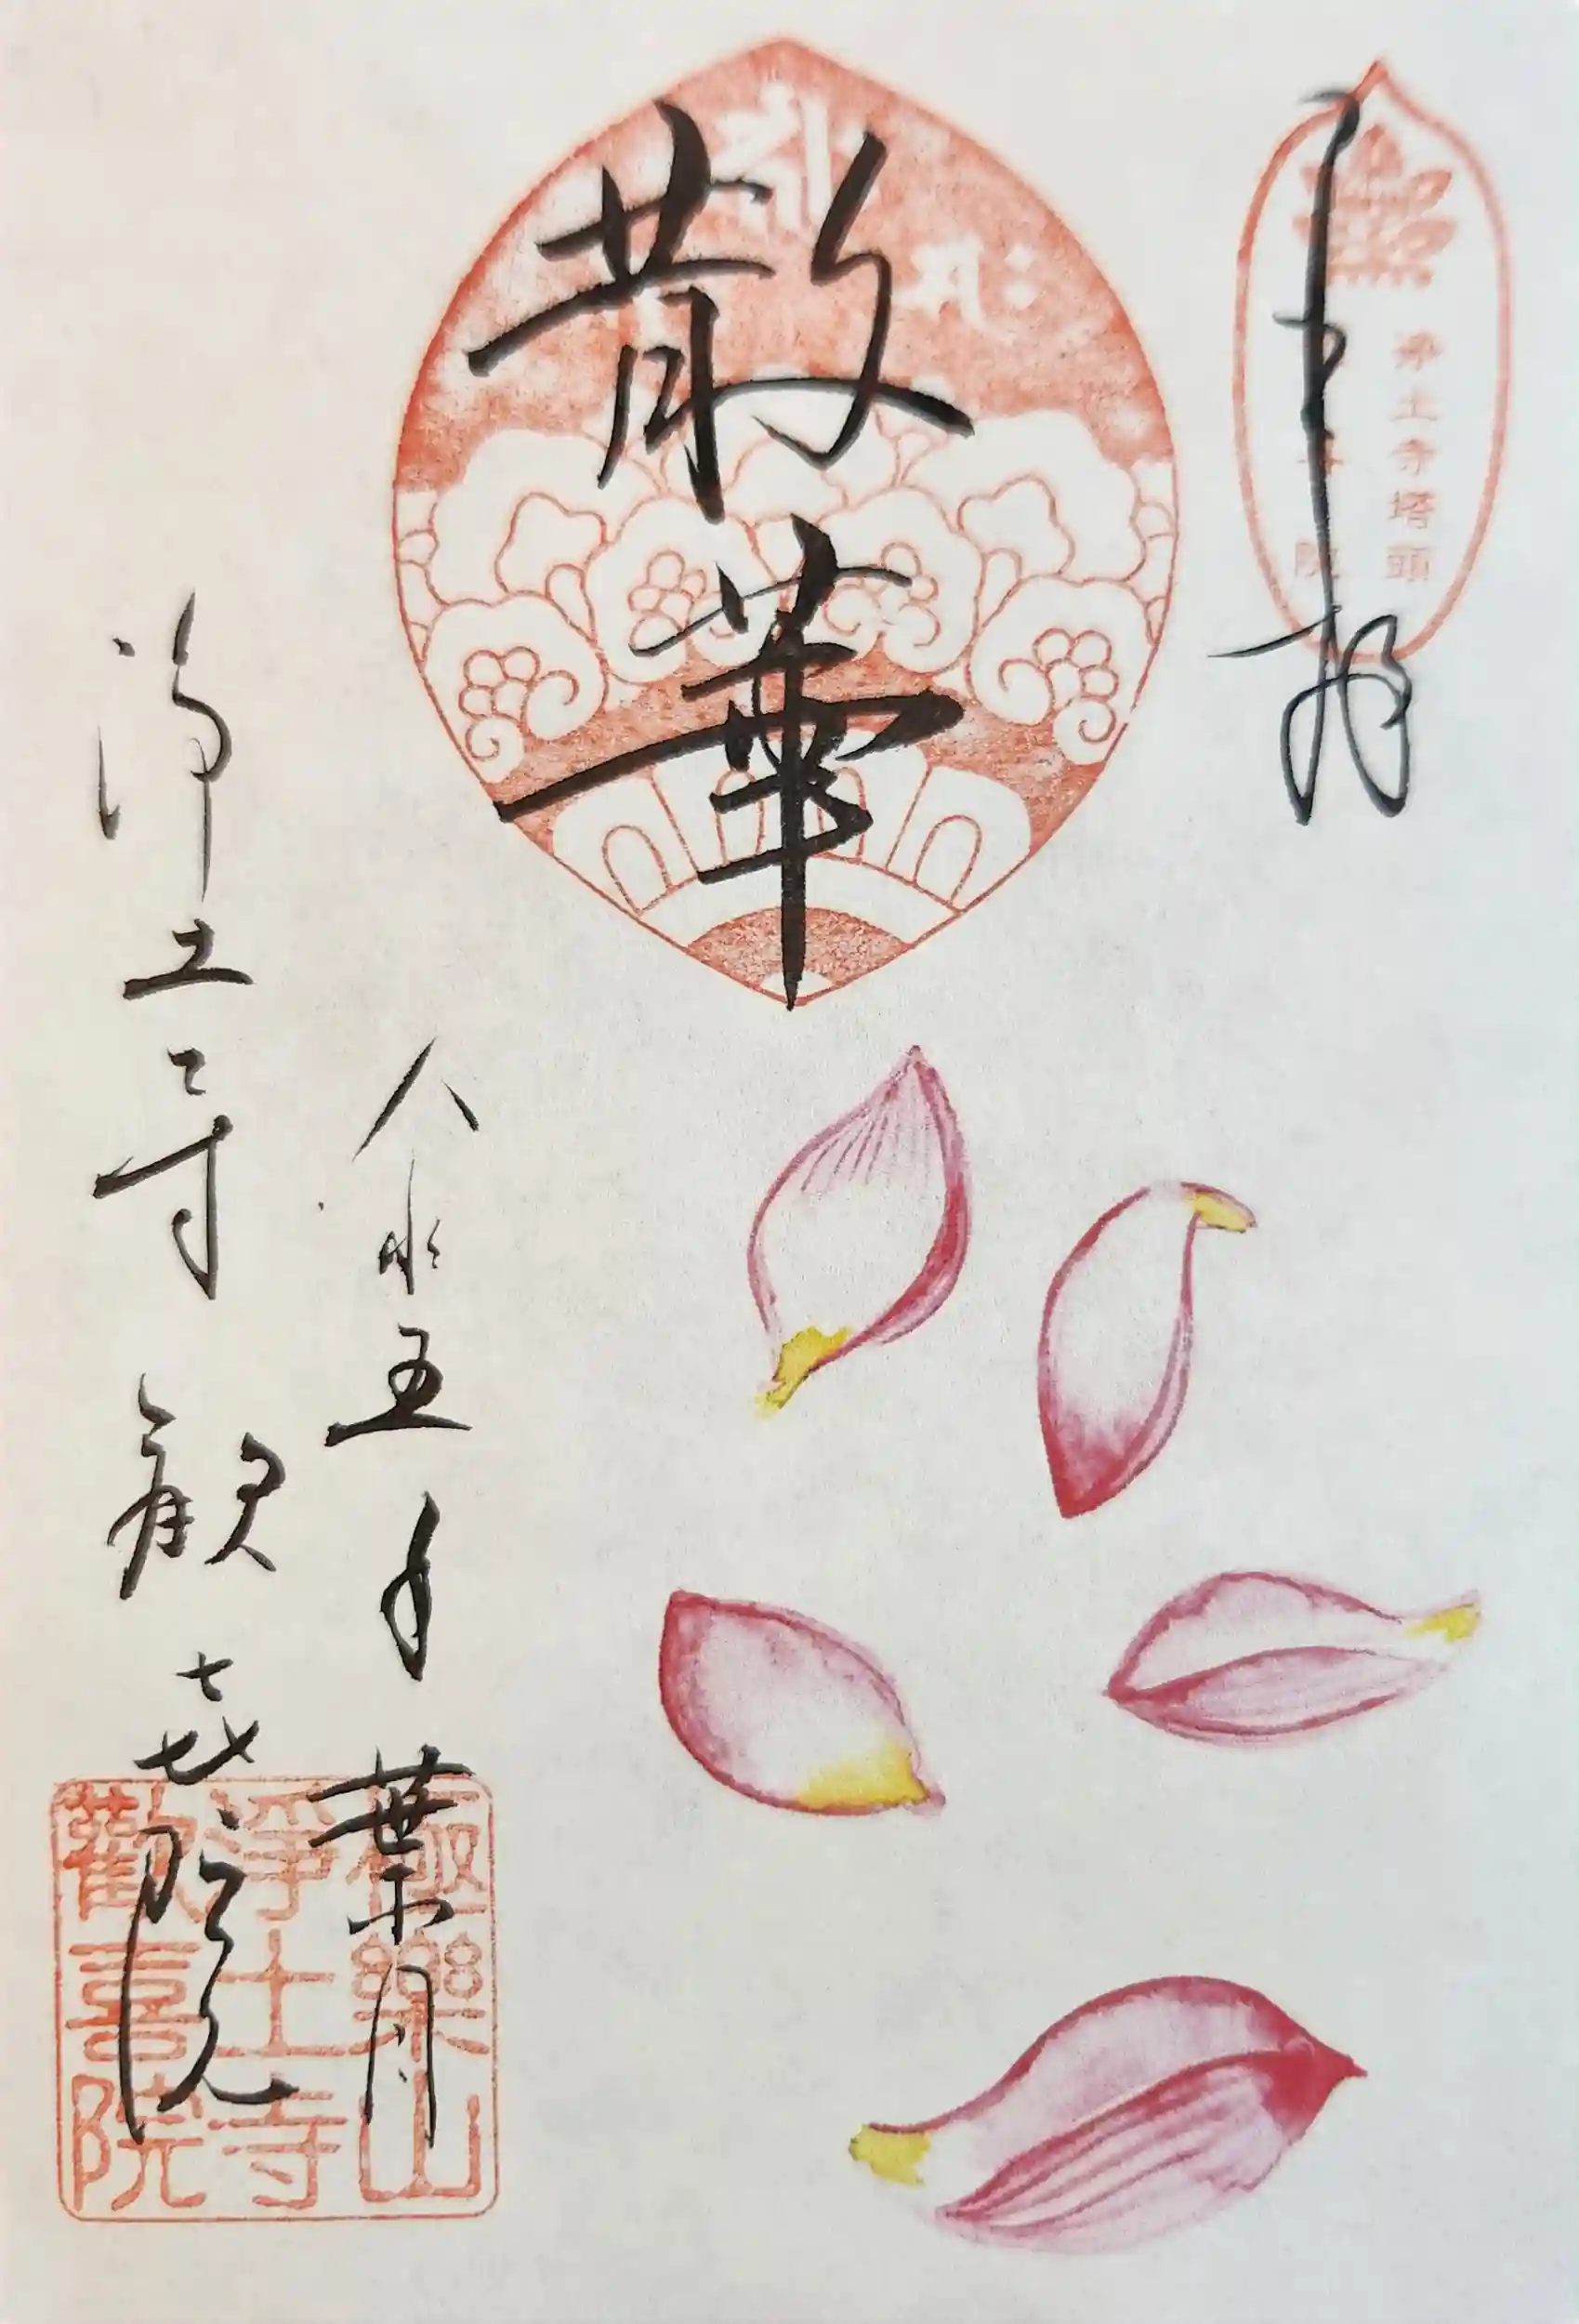 奉拝
浄土寺塔頭
院
散華
令和五年 葉月
浄土寺 歓喜院
極樂山
淨土寺
歡喜院